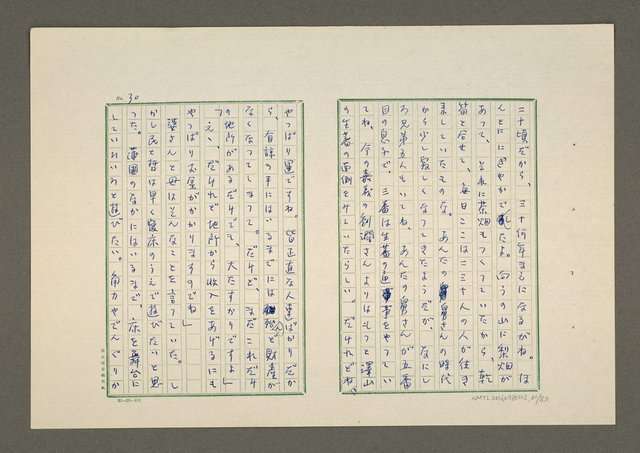 二十頃だから、三十何年まえになるかね。ほ
んとににぎやかでしたよ。向うの山に梨畑が
あって、それに茶畑もつくっていたから、乾
笛と合せて、毎日ここは二三十人の人が往き
来していたものな。あんたの舅さんの時代
から少し寂しくなってきたようだが、なにし
ろ兄弟五人もいてね、あんたの舅さんが五番
目の息子で、三番は生蕃の通事をやってい
てね、今の嘉義の製潤さんよりはもっと深山
の生蕃の面倒をみていたらしい。だけれどね、
No. 30
やっぱり運ですね。皆正直な人達ばかりだか
ら、自談の手にはいるまでには殆んど財産が
なくなってしまって。だけど、まだこれだけ
の地所があるだけでも、大たすかりですよ」
「ええ、だけれど地所から收入をあげるにも
やっぱりお金がかかりますのでね」
婆さんと母はそんなことを言っていた。し
かし民と哲は早く寢床のうえで遊びたいと思
った。蒲團のなかにはいるまで、床を舞台に
していろいろと遊びたい。角力やでんぐりか
NMTL20060980006, 30/83